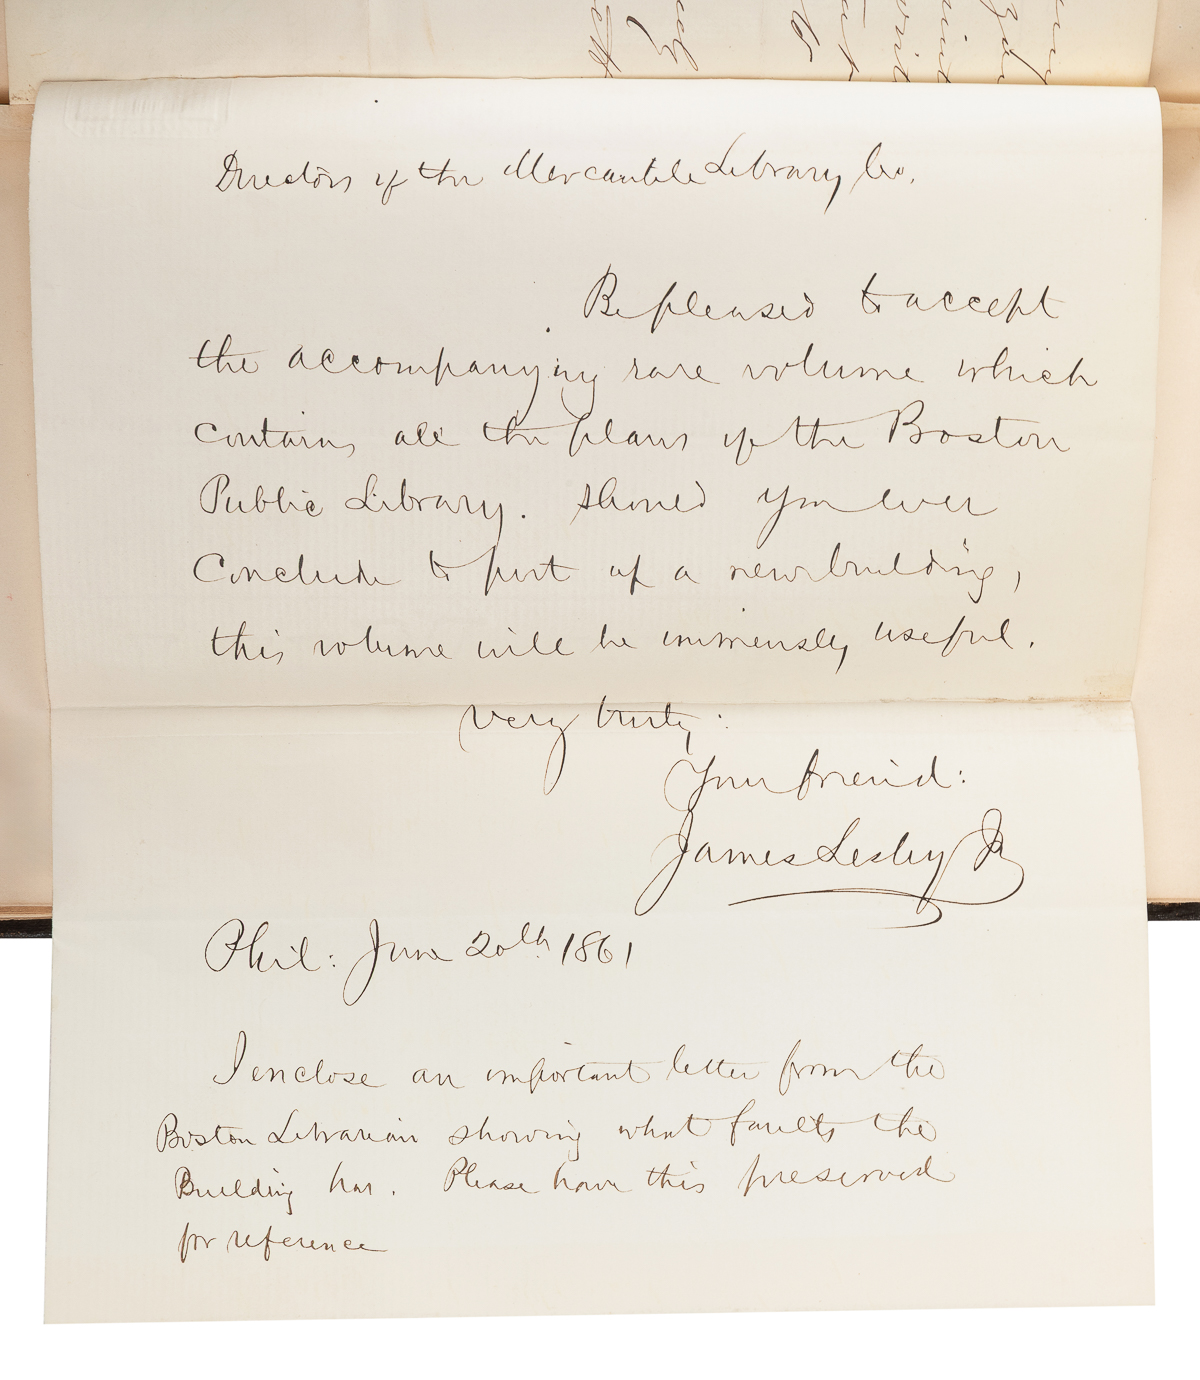 Directors of the Mercantile Library Co.
Be pleased to accept
the accompanying rare volume which
contains all the plans of the Boston
Public Library. Should you ever
conclude to put up a new building,
this volume will be immensely useful.
very truly:
Your friend:
James Lesley Jr
Phil: June 20th 1861
I enclose an important letter from the
Boston Librarian showing what faults the
Building has. Please have this preserved
for reference